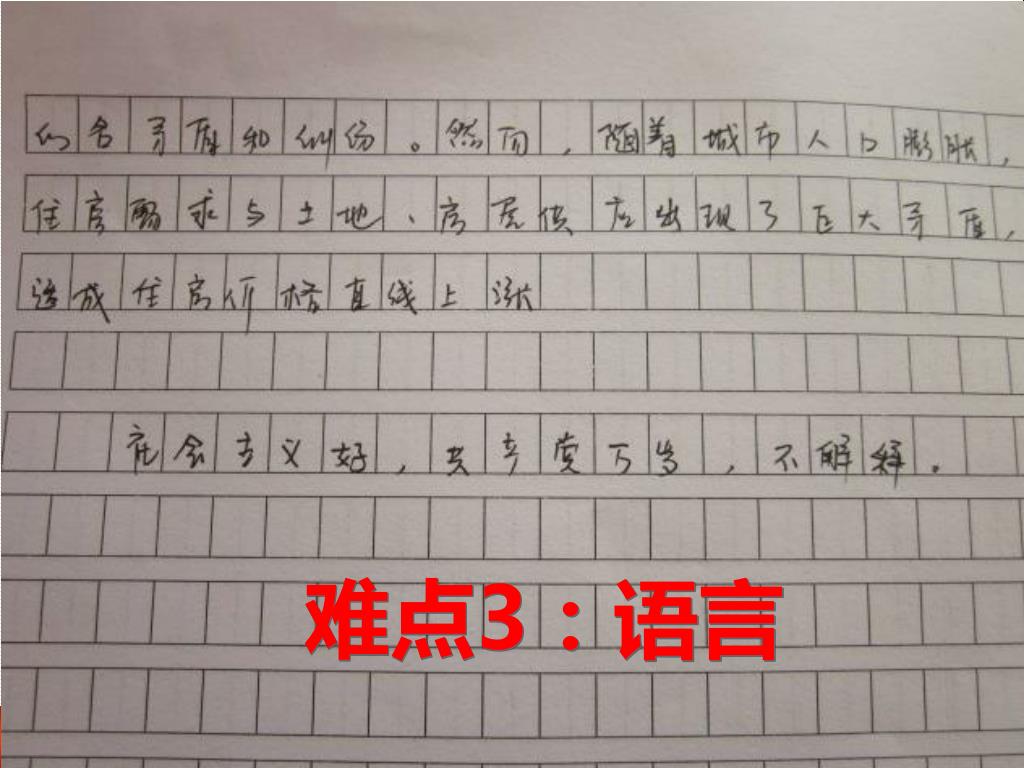 的各矛盾和纠纷。然而，随着城市人口膨胀，
住房需求与土地、房屋供应出现了巨大矛盾，
造成住房价格直线上涨
社会主义好，共产党万岁，不解释。
难点3：语言